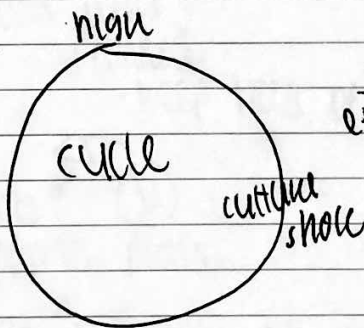 high
cycle
culture
shock